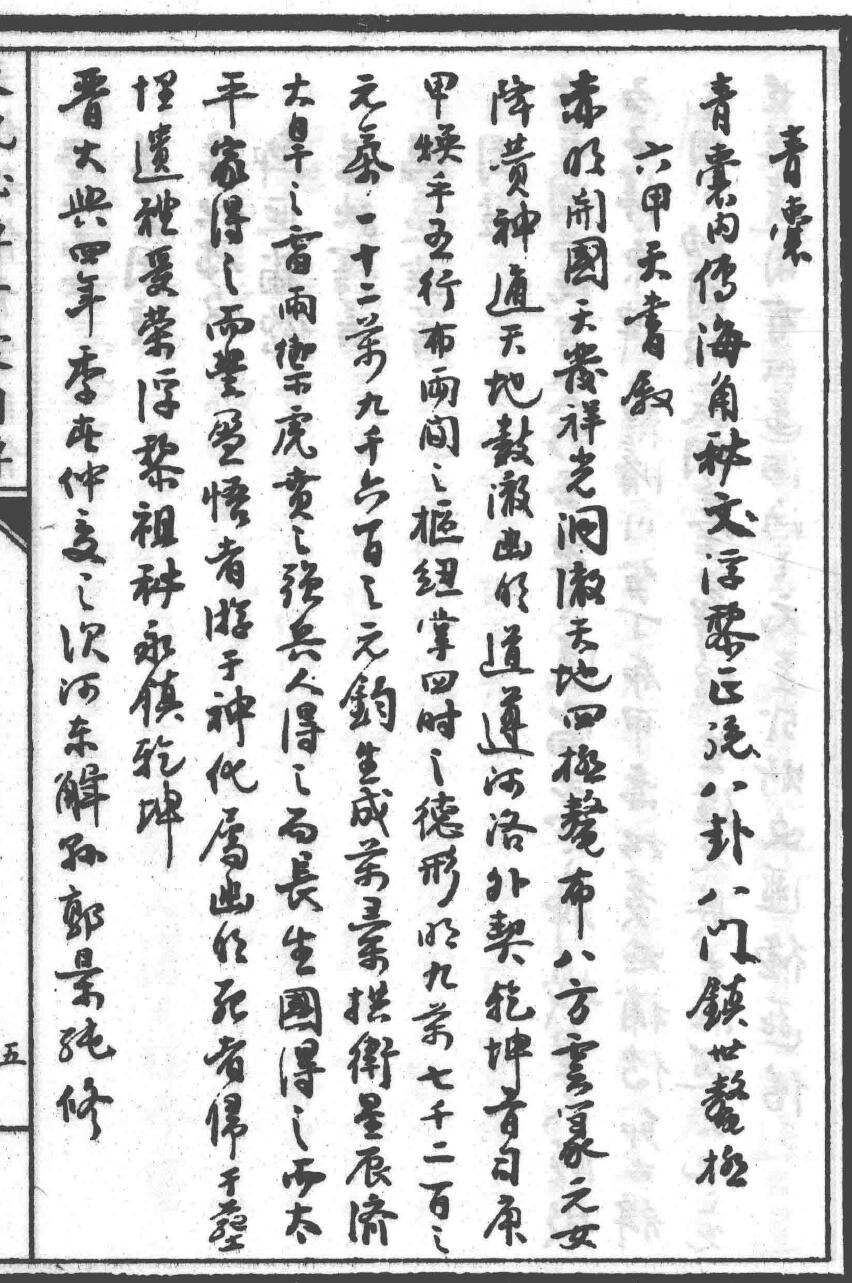 青囊
青囊内傳海角秘文浮黎正炁八卦八门鎮世鰲極
六甲天書敘
赤明開國天發祥光洞徹天地四極鰲布八方雲篆元女
降黃神通天地鼓澈幽明道遵河洛外契乾坤首司庚
甲煥乎五行布兩間之樞紐掌四时之德形明九萬七千二百之
元氣一十二萬九千六百之元鈞生成萬彙拱衛星辰濟
大旱之雷雨禦虎賁之强兵人得之而長生國得之而太
平家得之而豐盈悟者游于神化屬幽明死者歸于塟
埋遺裡受榮浮黎祖秘永鎮乾坤
晉大興四年季孟仲交之次河东解縣郭景純修
五